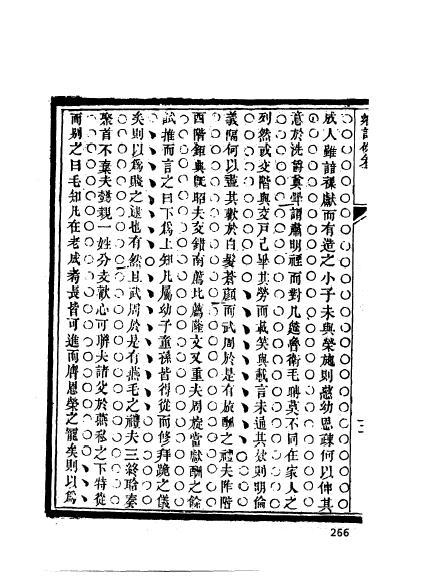 成人雖諳祼獻而有造之小子未與榮施則慈幼恩疎何以伸其
意於洗爵奠斝謂肅明禋而對几筵魯衛毛聃莫不同在家人之
列然或交階與交戶已畢其勞而載笑與載言未通其欵則明倫
義隔何以盡其歡於白髮蒼顏而武周於是有旅酬之禮夫阼階
西階鉅典旣昭夫交錯南薦北薦隆文又重夫周旋當獻酬之餘
試推而言之曰下為上知凡屬幼子童孫皆得從而修拜跪之儀
矣則以為賤之逮也有然且武周於是有燕毛之禮夫三終聆奏
聚首不棄夫懿親一姓分支歡心可聯夫諸父於燕私之下特從
而别之曰毛知凡在老成耆長皆可進而膺恩榮之寵矣則以爲
266